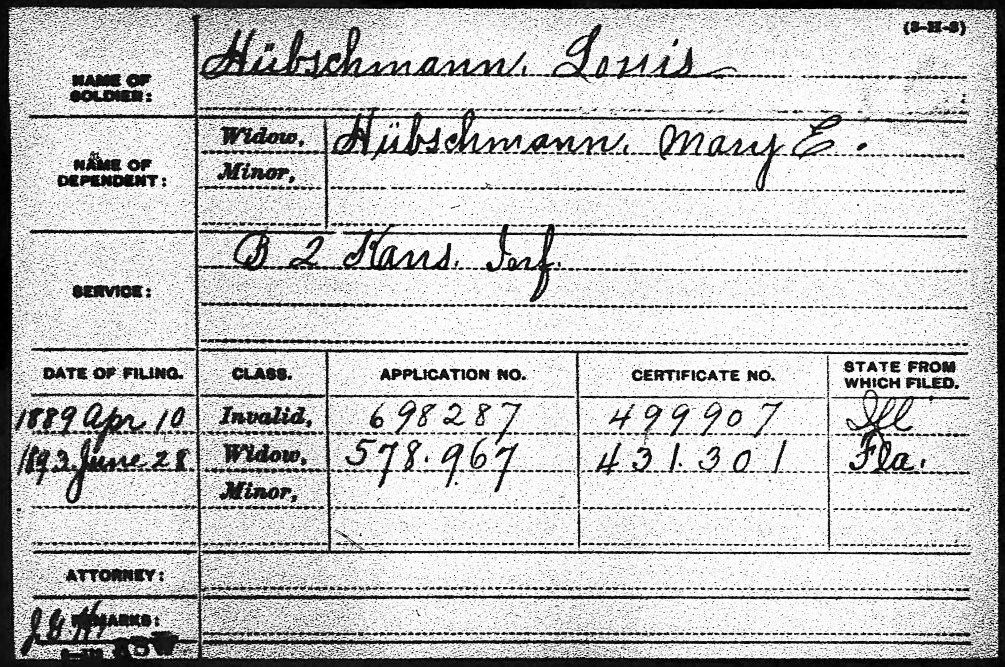 (3-H-3)
NAME OF SOLDIER: Hübschmann, Louis
NAME OF DEPENDENT: Widow, Hübschmann, Mary E.
Minor,
SERVICE: B 2 Kans. Inf.
DATE OF FILING. CLASS. APPLICATION NO. CERTIFICATE NO. STATE FROM WHICH FILED.
1889 Apr 10 Invalid, 698287 499907 Ill
1893 June 28 Widow, 578.967 431.301 Fla.
Minor,
ATTORNEY:
REMARKS: